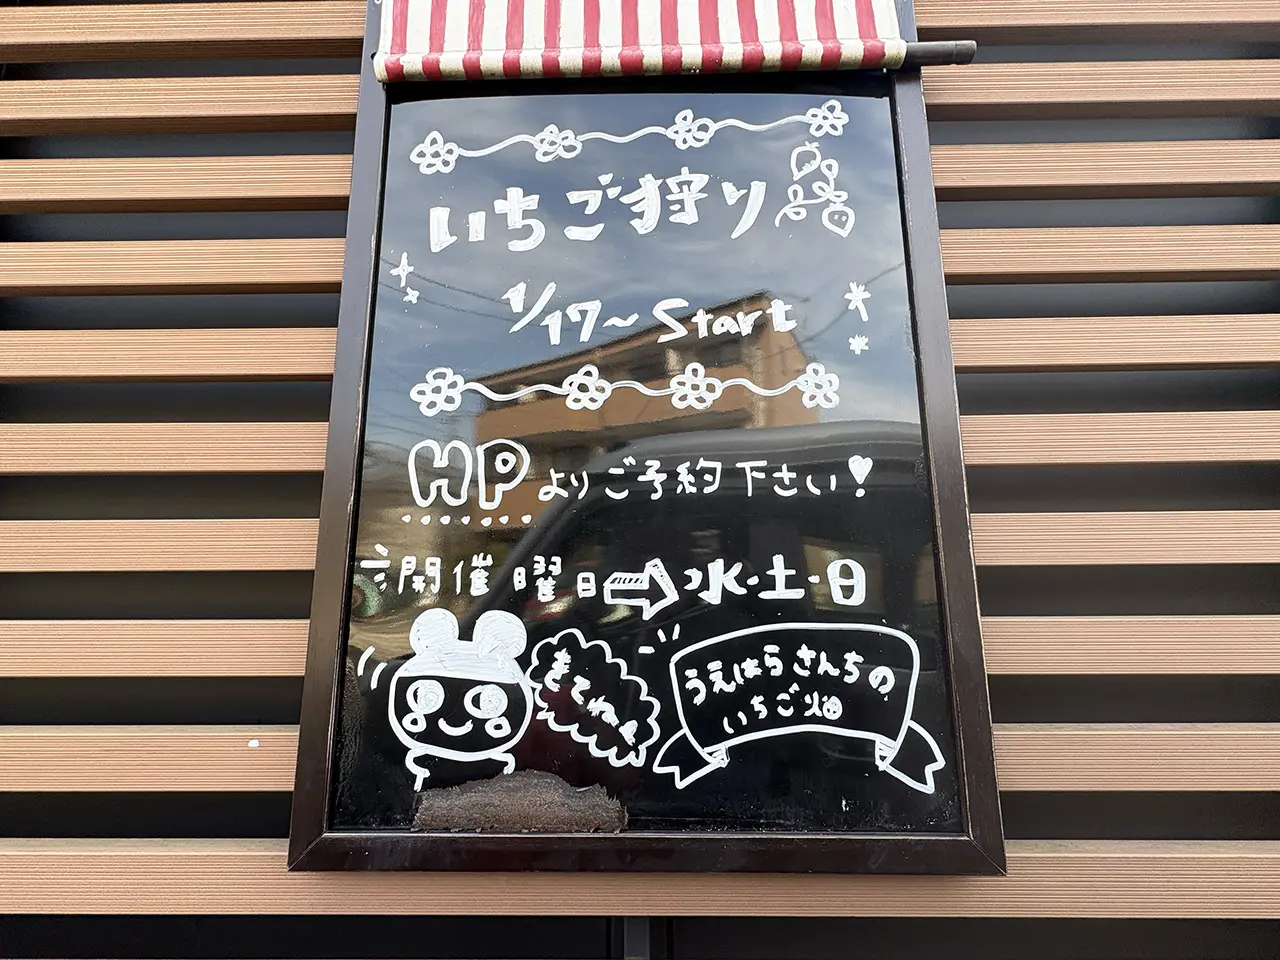 いちご狩り
1/17～Start
HPよりご予約下さい!
開催曜日⇨水・土・日
きてね
うえはらさんちの
いちご畑